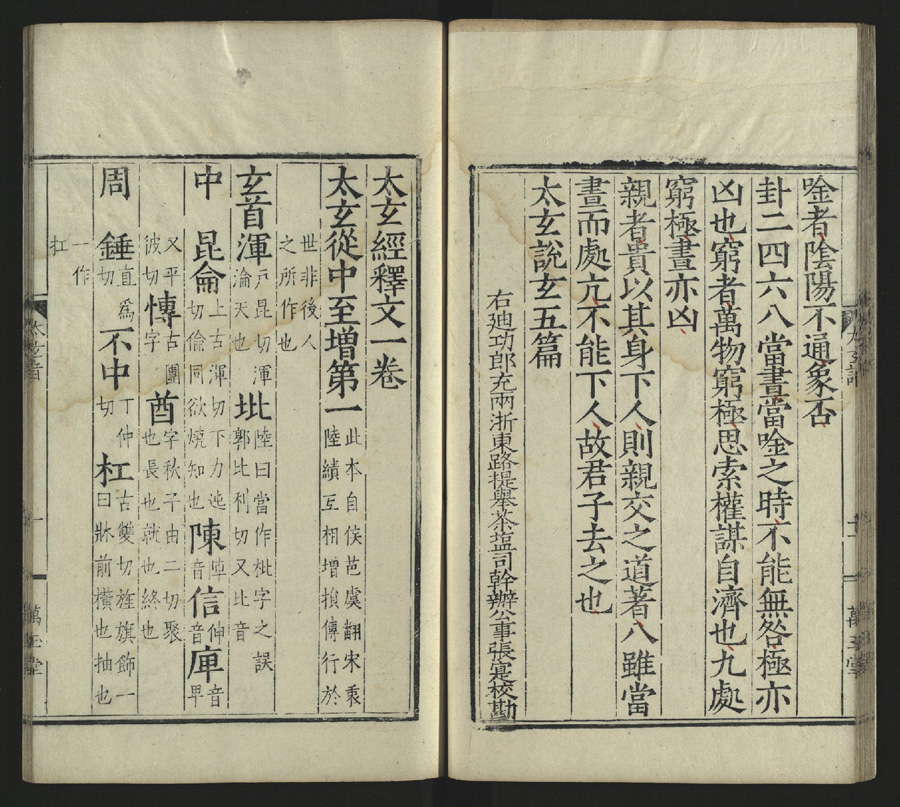 唫者陰陽不通象否
卦二四六八當晝當唫之時不能無咎極亦
凶也窮者萬物窮極思索權謀自濟也九處
窮極晝亦凶
親者貴以其身下人則親交之道著八雖當
晝而處亢不能下人故君子去之也
太玄說玄五篇
右迪功郎充兩浙東路提舉茶塩司幹辦公事張寔校勘
太玄經釋文一卷
太玄從中至增第一此本自侯芭虞翻宋衷
陸績互相增損傳行於
世非後人
之所作也
玄首渾戶昆切渾淪天也㘩陸曰當作枇字之誤郭比利切又比音
中 昆侖上古渾切下力迍切倫同欲燒知也陳音陣信伸音庳音卑
又平彼切慱古團字酋字秋子由二切聚也長也就也終也
周 錘直爲切不中丁仲切杠古雙切旌旗飾一曰牀前橫也抽也
一作扛
萬玉堂